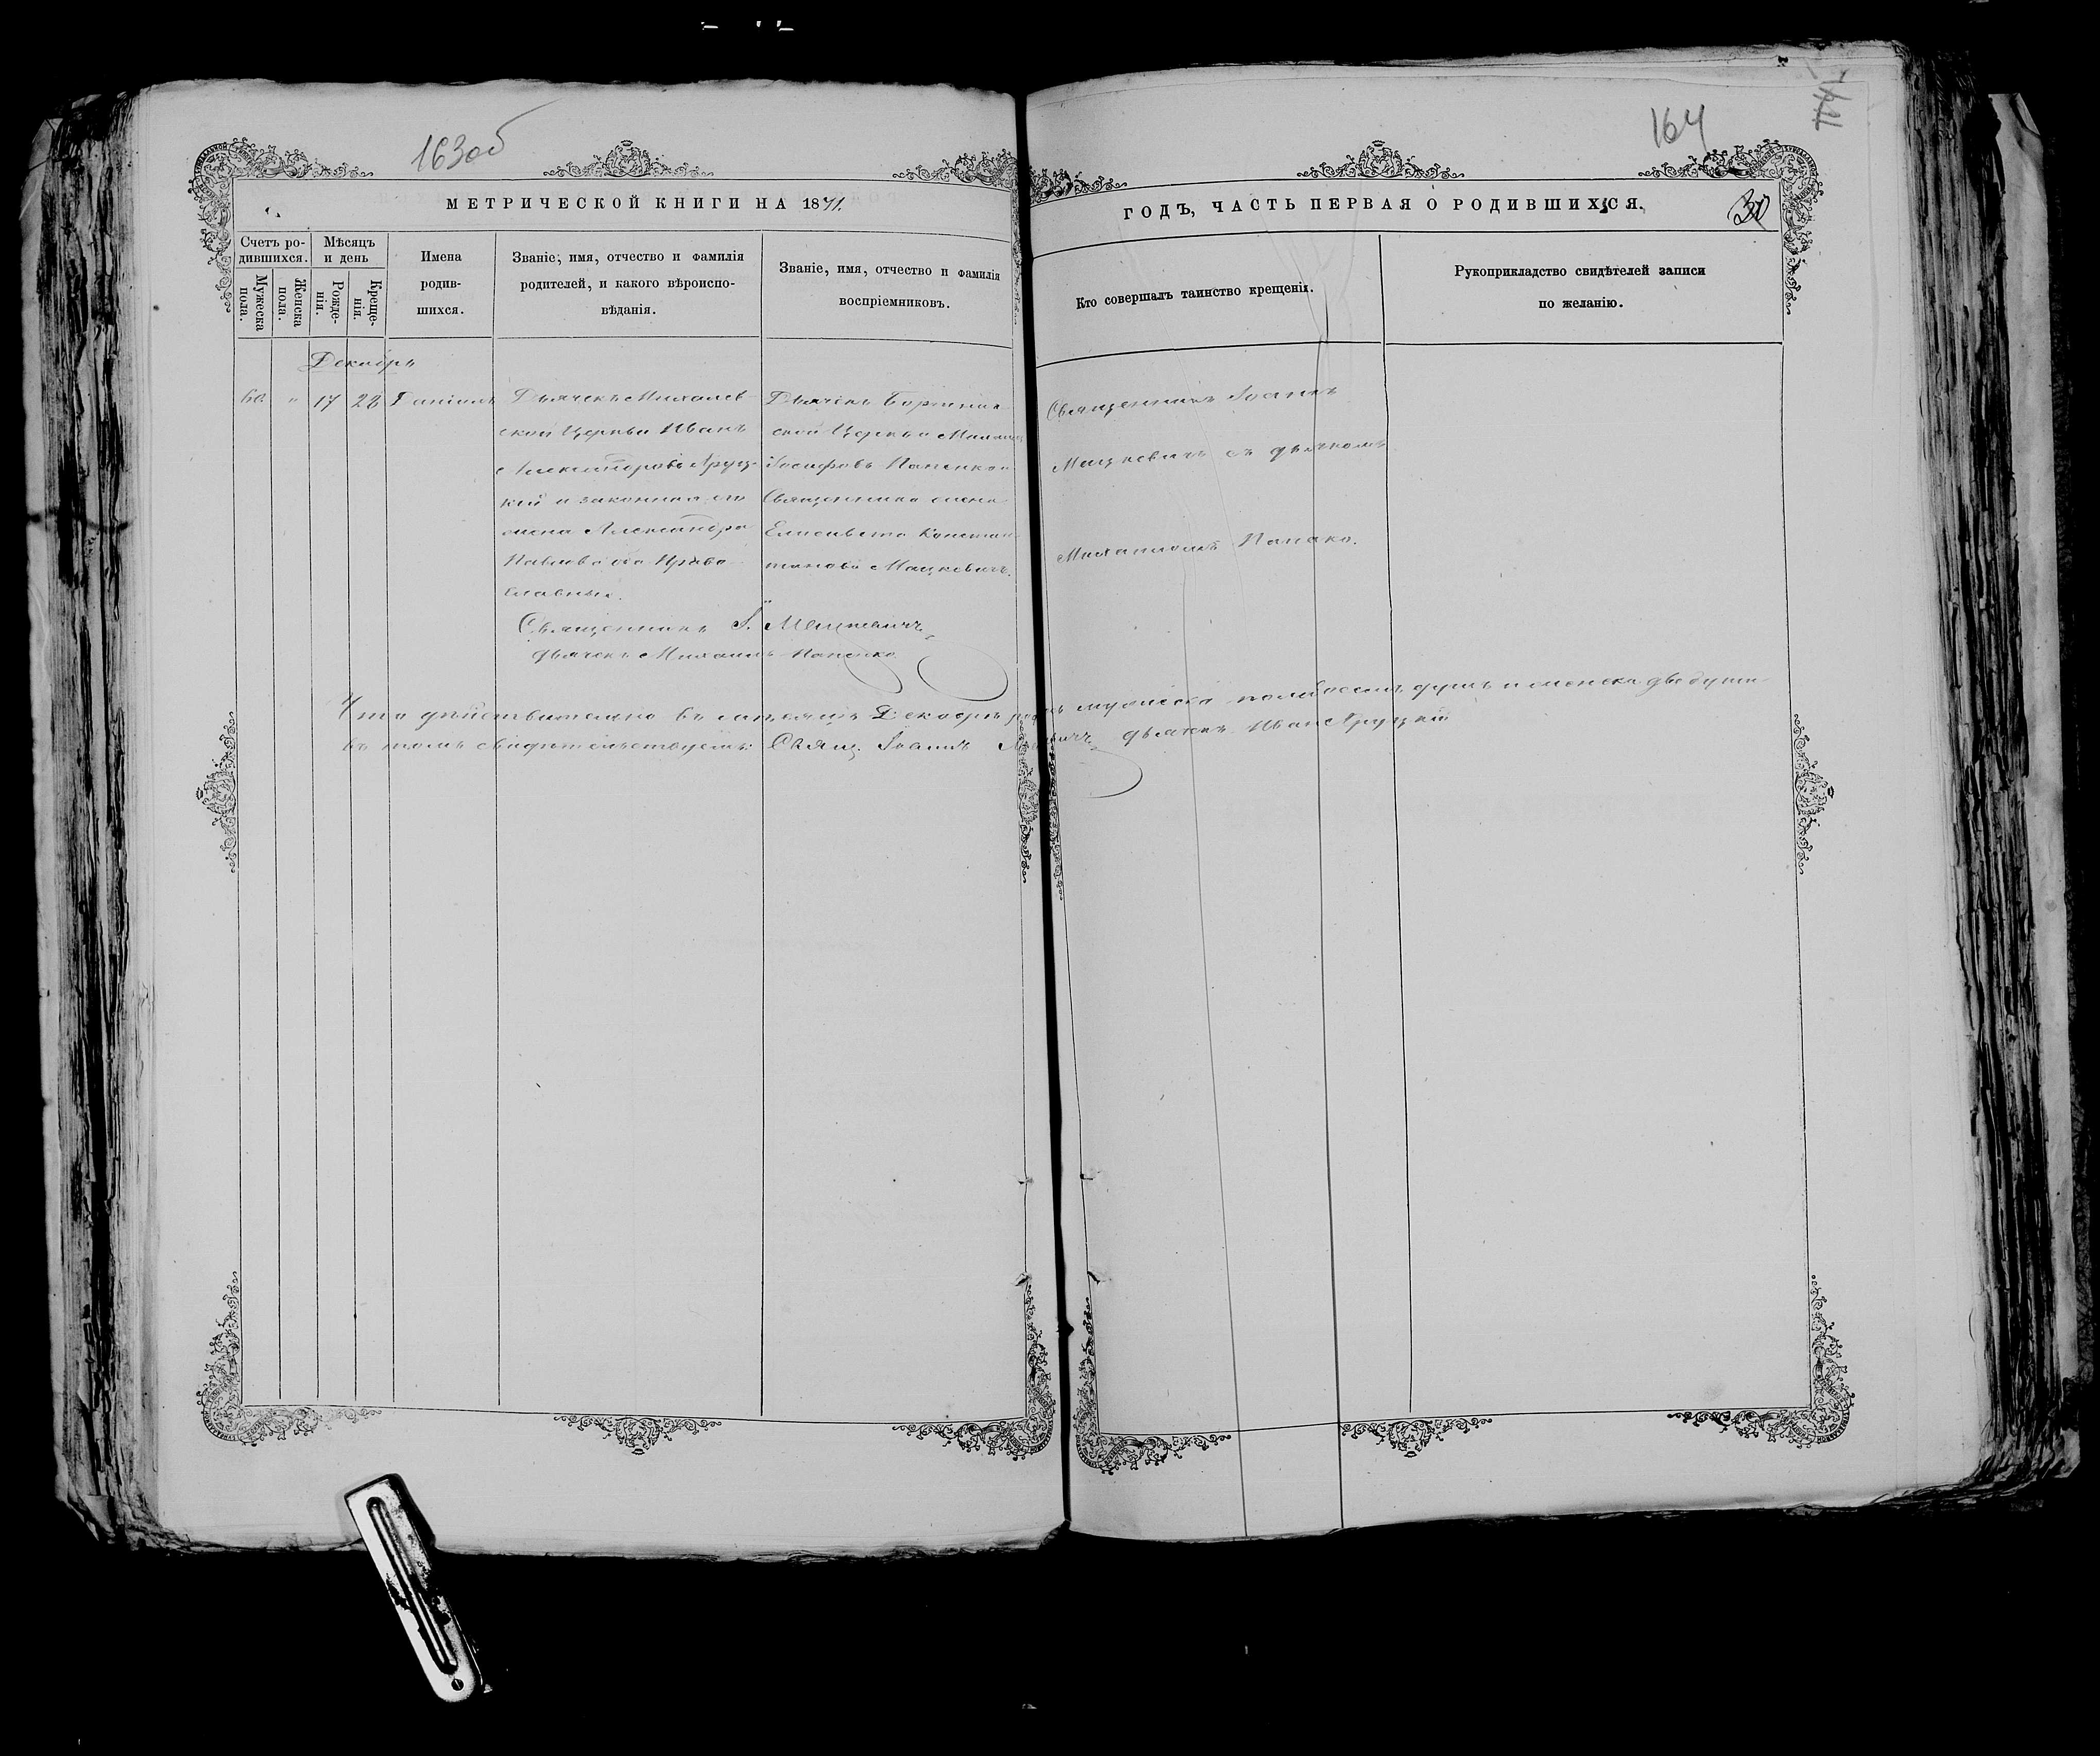 163об
164
30
МЕТРИЧЕСКОЙ КНИГИ НА 1871.
ГОДЪ, ЧАСТЬ ПЕРВАЯ О РОДИВШИХСЯ.
Счетъ ро-
дившихся.
Мужеска
пола.
Женска
пола.
Мѣсяцъ
и день
Рожде-
нія.
Креще-
нія.
Имена
родив-
шихся.
Званіе, имя, отчество и фамилія
родителей, и какого вѣроиспо-
вѣданія.
Званіе, имя, отчество и фамилія
воспріемниковъ.
Кто совершалъ таинство крещенія.
Рукоприкладство свидѣтелей записи
по желанію.
Декабрь
17 28 Даніилъ
Дьячекъ Михалев-
ской Церкви Иванъ
Александровъ Яруц-
кій и законная его
жена Александра
Павлова оба Право-
славные.
Дьячекъ
ской Церкви Михаилъ
Іосифовъ Папенко и
Священника жена
Елисавета Констан-
тинова Мацкевичъ.
Священникъ Іоаннъ
Мацкевичъ съ дьячкомъ
Михаиломъ Папенко.
Священникъ І. Мацкевичъ
дьячекъ Михаилъ Папенко
Что дѣйствительно въ мѣсяцѣ Декабрѣ мужеска пола восемь душъ и женска двѣ души
въ томъ свидѣтельствуемъ: Свящ. Іоаннъ Мацкевичъ дьячекъ Иванъ Яруцкій